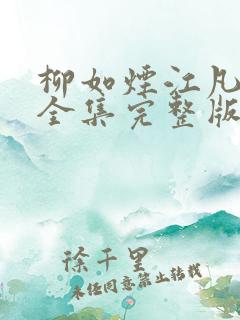 柳如煙江凡
全集完整版
徐千里
未经同意禁止转载